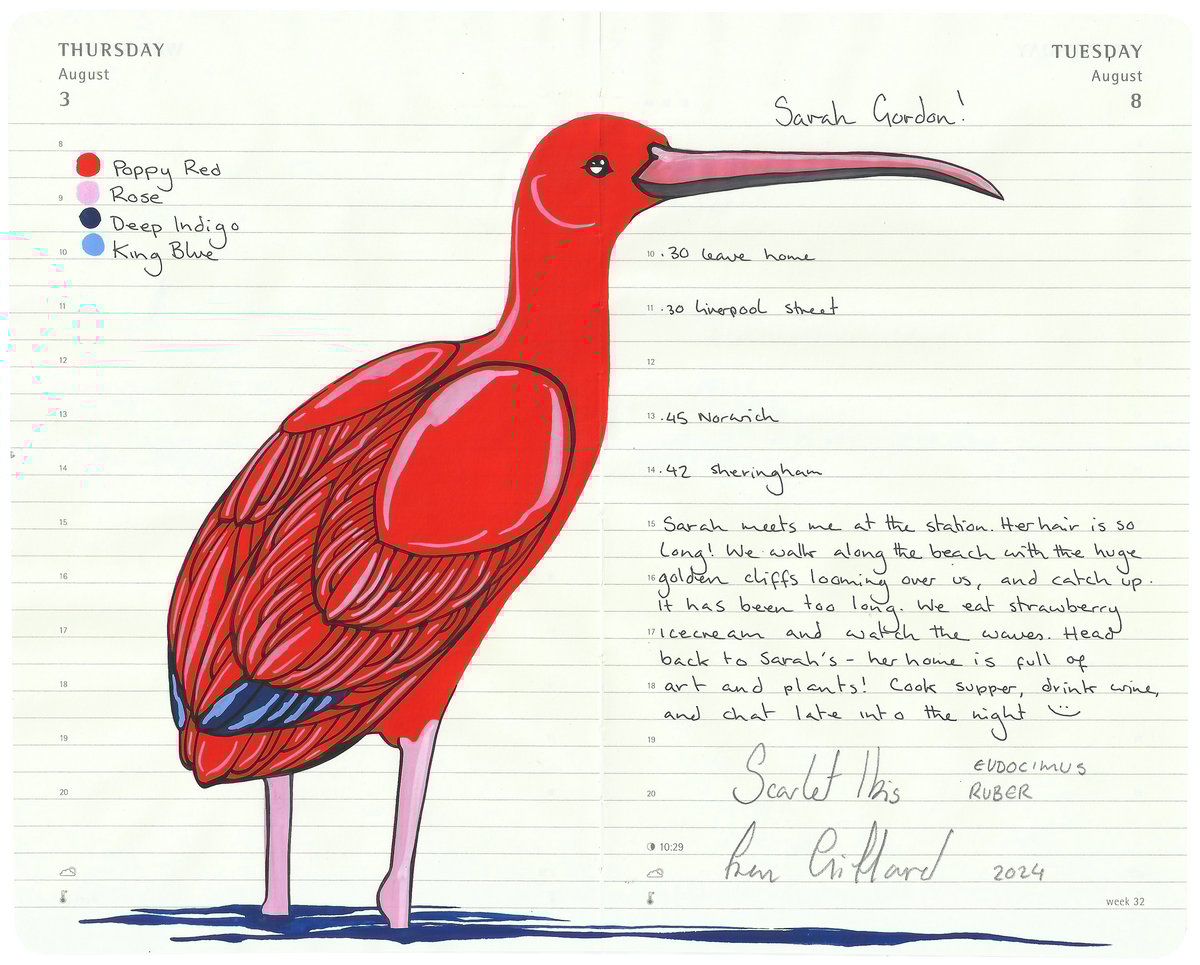 THURSDAY
August
3
8
Poppy Red
Rose
9
Deep Indigo
10
King Blue
11
12
13
14
15
16
17
18
19
20
TUESDAY
August
8
Sarah Gordon!
10 .30 leave home
11 .30 Liverpool street
12
13 .45 Norwich
14 .42 Sheringham
15 Sarah meets me at the station. Her hair is so
long! We walk along the beach with the huge
16 golden cliffs looming over us, and catch up.
It has been too long. We eat strawberry
17 icecream and watch the waves. Head
back to Sarah's – her home is full of
18 art and plants! Cook supper, drink wine,
and chat late into the night
19
Scarlet Ibis EUDOCIMUS
20 RUBER
10:29
2024
week 32